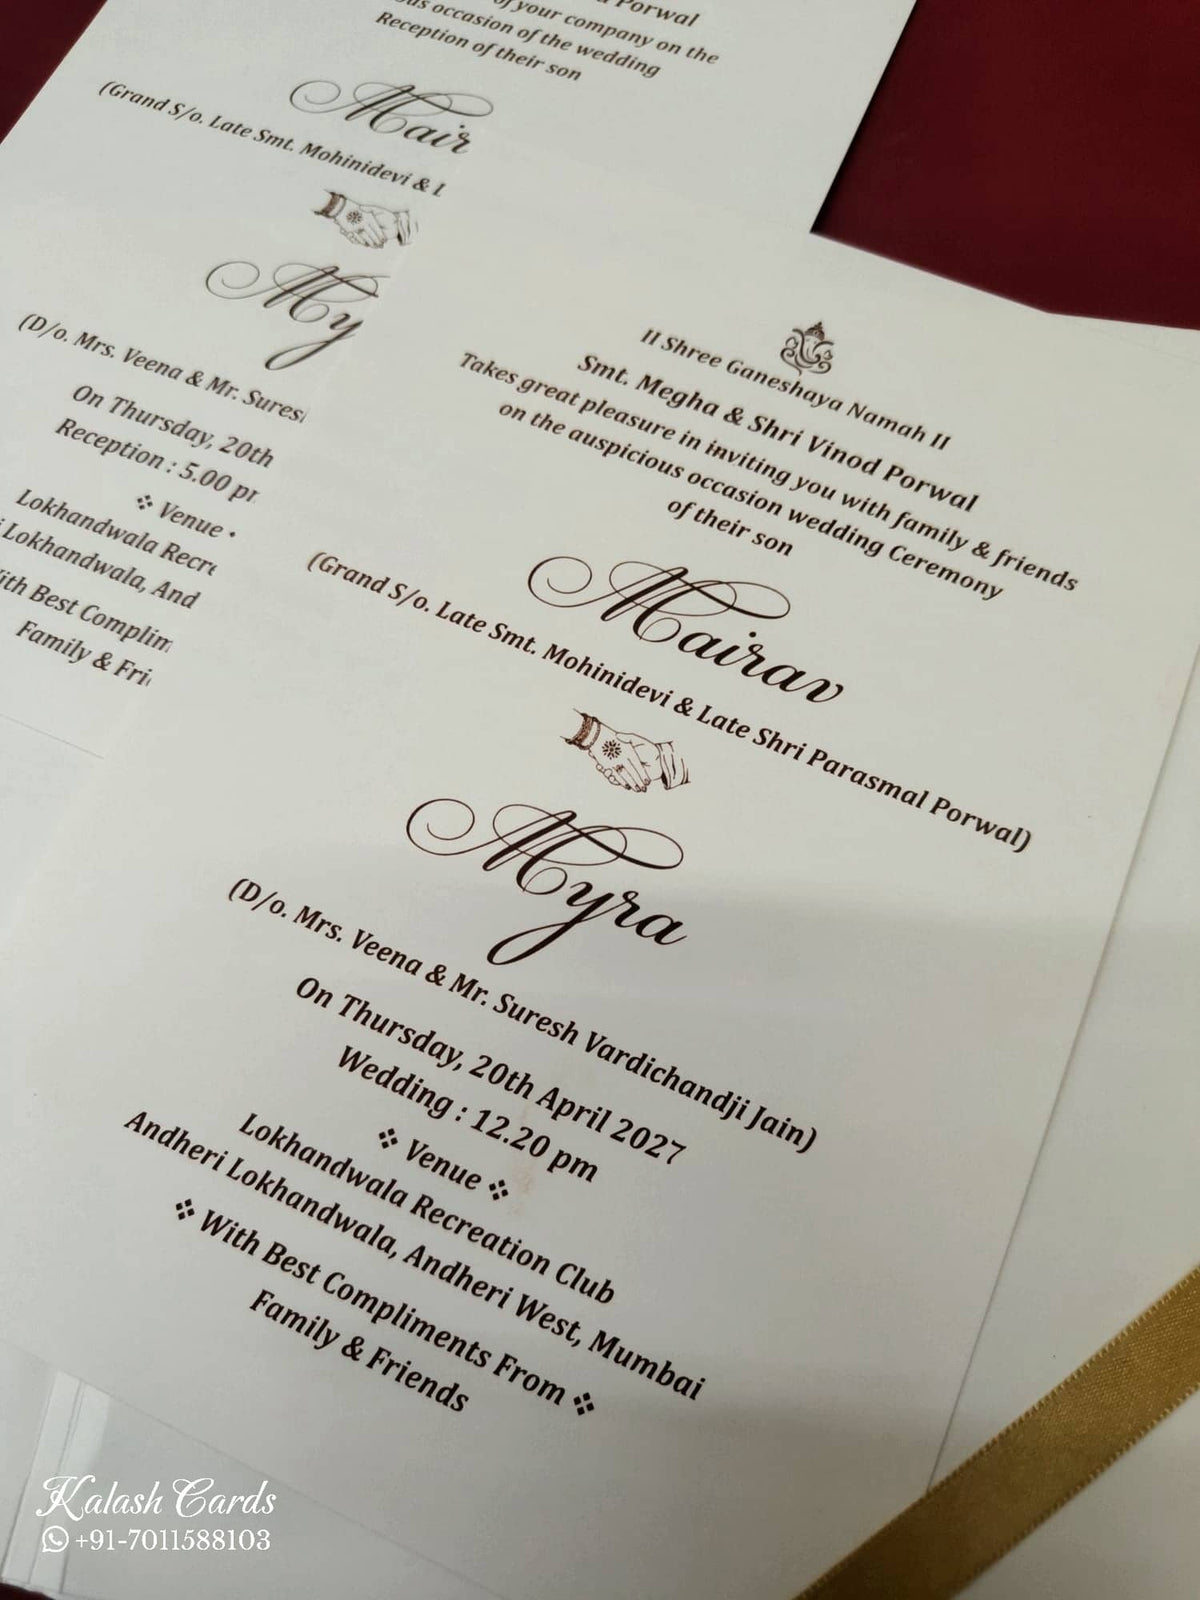 Porwal
of your company on the
occasion of the wedding
Reception of their son
Mair
(Grand S/o. Late Smt. Mohinidevi & L
My
(D/o. Mrs. Veena & Mr. Sures
On Thursday, 20th
Reception : 5.00 pm
❖ Venue
Lokhandwala Recre
Lokhandwala, And
ith Best Complim
Family & Fri
II Shree Ganeshaya Namah II
Smt. Megha & Shri Vinod Porwal
Takes great pleasure in inviting you with family & friends
on the auspicious occasion wedding Ceremony
of their son
Mairav
(Grand S/o. Late Smt. Mohinidevi & Late Shri Parasmal Porwal)
Myra
(D/o. Mrs. Veena & Mr. Suresh Vardichandji Jain)
On Thursday, 20th April 2027
Wedding : 12.20 pm
❖ Venue ❖
Lokhandwala Recreation Club
Andheri Lokhandwala, Andheri West, Mumbai
❖ With Best Compliments From ❖
Family & Friends
Kalash Cards
+91-7011588103